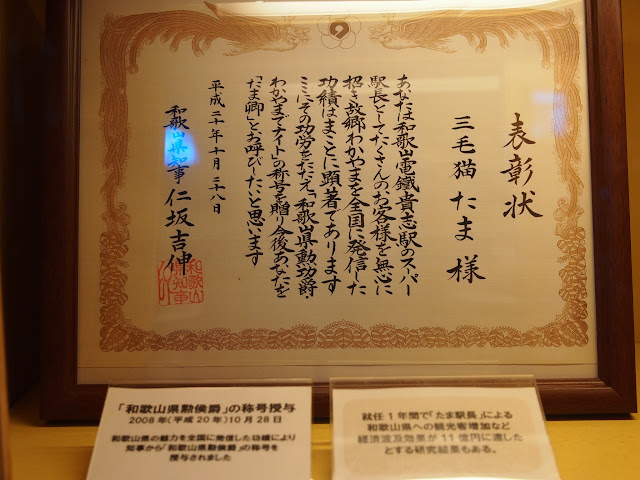 表彰状
三毛猫 たま 様
あなたは和歌山電鐵貴志駅のスーパー
駅長としてたくさんのお客様を無心に
招き故郷わかやまを全国に発信した
功績はまことに顕著であります
ここにその功労をたたえ「和歌山県勲功爵・
わかやまでナイト」の称号を贈り今後あなたを
「たま卿」とお呼びしたいと思います
平成二十年十月二十八日
和歌山県知事 仁坂吉伸
和歌山
県知事
「和歌山県勲侯爵」の称号授与
2008年(平成20年)10月28日
和歌山県の魅力を全国に発信した功績により
知事から「和歌山県勲侯爵」の称号を
授与されました
就任1年間で「たま駅長」による
和歌山県への観光客増加など
経済波及効果が11億円に達した
とする研究結果もある。